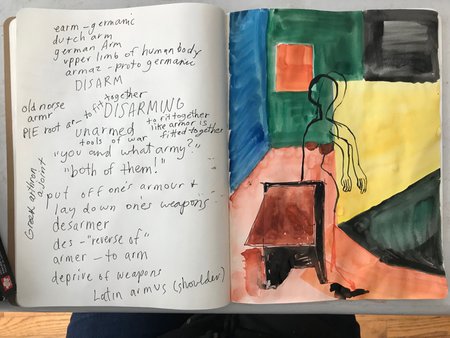 earm - germanic
dutch arm
german Arm
upper limb of human body
armaz - proto germanic
DISARM
old norse
armr
PIE root ar - to fit together
DISARMING
unarmed
to fit together
like armor is
fitted together
tools of war
"you and what army?"
"both of them!"
Greek arthron
a joint
put off one's armour +
lay down one's weapons"
desarmer
des - "reverse of"
armer - to arm
deprive of weapons
Latin armus (shoulder)